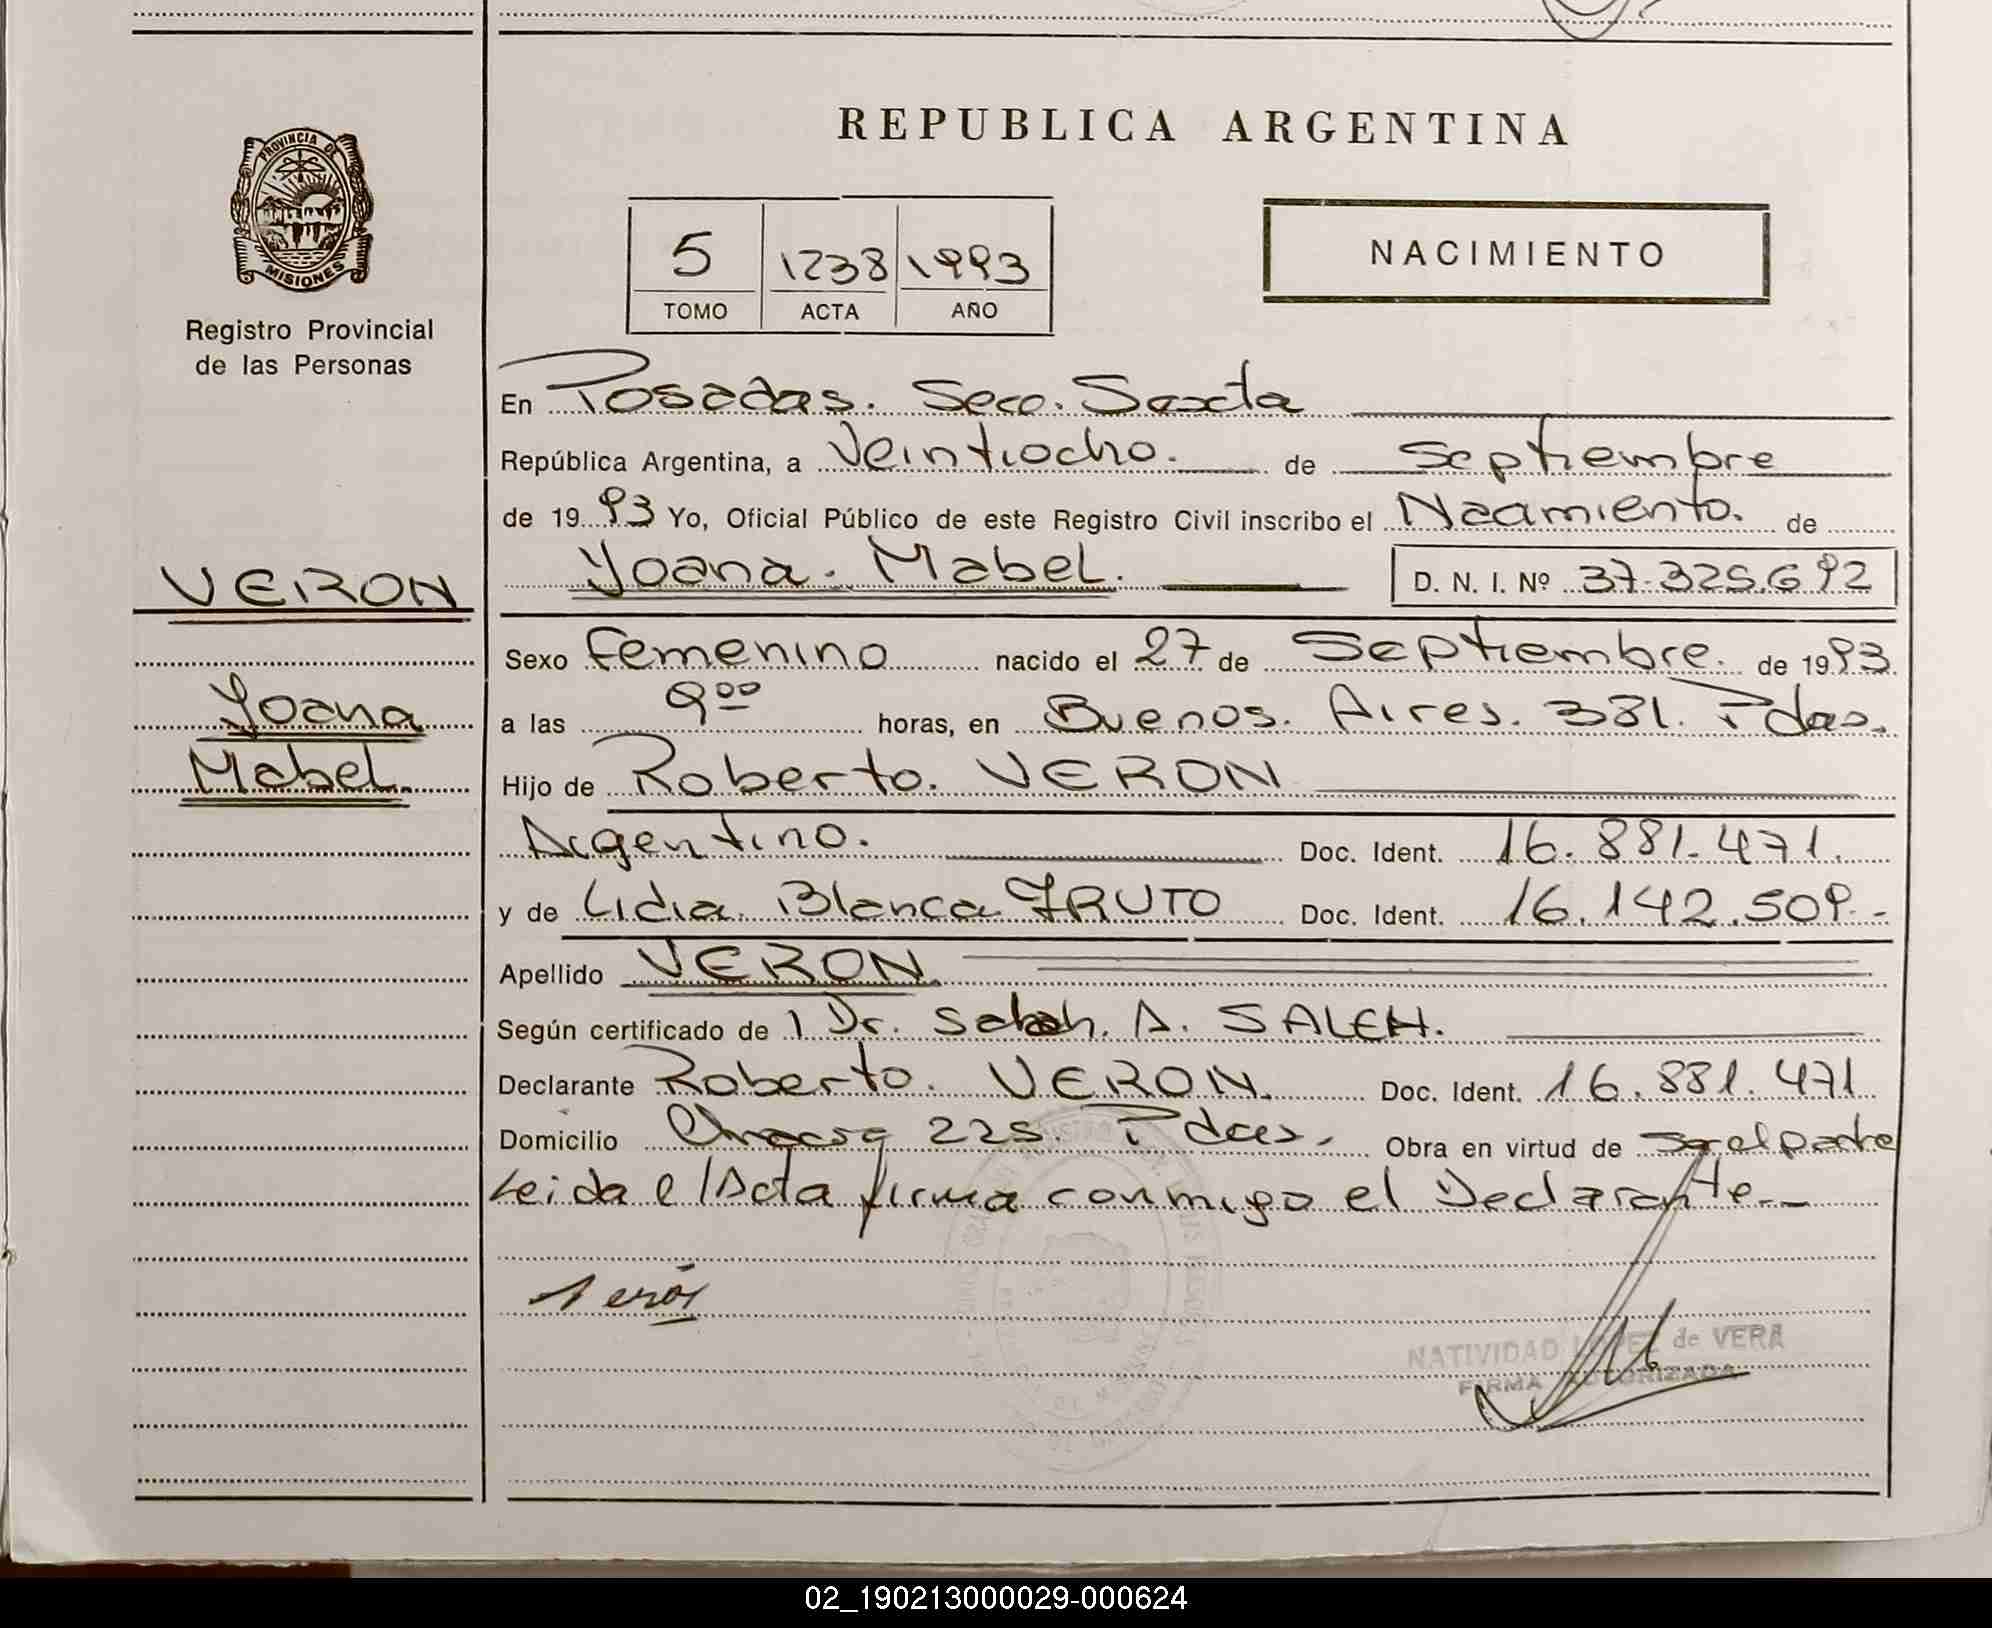 REPUBLICA ARGENTINA
PROVINCIA DE
MISIONES
Registro Provincial
de las Personas
5 1238 1993
TOMO ACTA AÑO
NACIMIENTO
En Posadas. Secc. Sexta
República Argentina, a Veintiocho. de Septiembre
de 1993 Yo, Oficial Público de este Registro Civil inscribo el Nacimiento. de
VERON
Yoana. Mabel. D. N. I. Nº 37.325.692
Sexo Femenino nacido el 27 de Septiembre. de 1993
Yoana
Mabel.
a las 9 00 horas, en Buenos. Aires. 381. Pdas.
Hijo de Roberto. VERON
Argentino. Doc. Ident. 16.881.471.
y de Lidia. Blanca FRUTO Doc. Ident. 16.142.509.-
Apellido VERON
Según certificado de 1 Dr. A. SALEH.
Declarante Roberto. VERON. Doc. Ident. 16.881.471
Domicilio 225. Pdas. Obra en virtud de ser el padre
Leida e l Acta firma conmigo el Declarante.-
NATIVIDAD LOPEZ de VERA
FIRMA AUTORIZADA
02_190213000029-000624